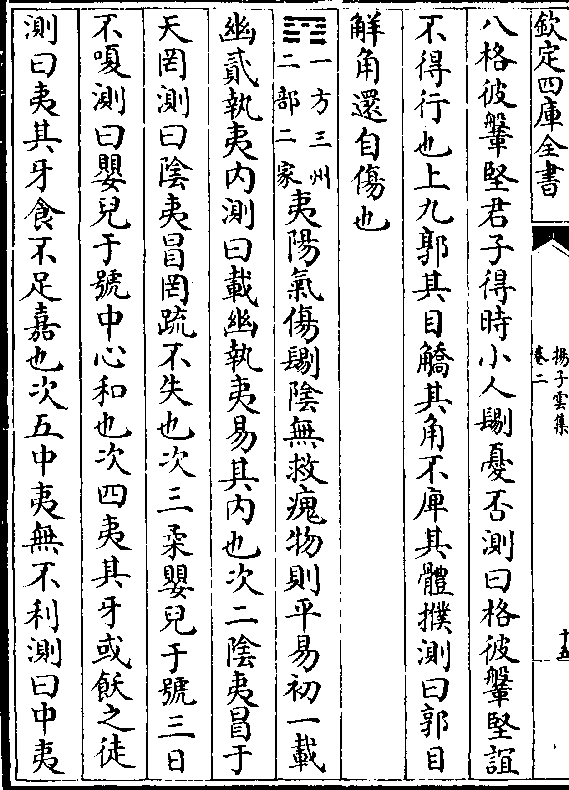 欽定四庫全書
揚子雲集
卷二
十五
八格彼鞶堅君子得時小人䦧憂否測曰格彼鞶堅誼
不得行也上九郭其目觹其角不庳其體撲測曰郭目
觧角還自傷也
一方三州
二部二家
夷陽氣傷䦧陰無救瘣物則平易初一載
幽貳執夷内測曰載幽執夷易其内也次二陰夷冒于
天罔測曰陰夷冒罔疏不失也次三柔嬰兒于號三日
不嗄測曰嬰兒于號中心和也次四夷其牙或飫之徒
測曰夷其牙食不足嘉也次五中夷無不利測曰中夷